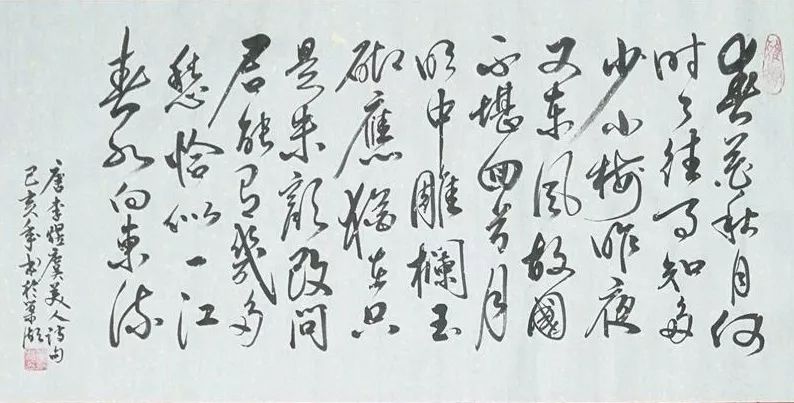 春花秋月何
时了往事知多
少小楼昨夜
又东风故國
不堪回首月
明中雕欄玉
砌應猶在只
是朱颜改问
君能有幾多
愁恰似一江
春水向東流
唐李煜虞美人诗句
己亥年书於巢湖